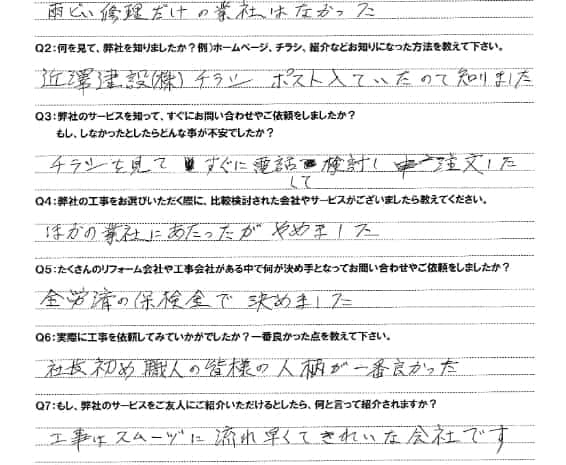 雨どい修理だけの業社はなかった
Q2：何を見て、弊社を知りましたか？例）ホームページ、チラシ、紹介などお知りになった方法を教えて下さい。
近澤建設(株)チラシ ポスト入ていたので知りました
Q3：弊社のサービスを知って、すぐにお問い合わせやご依頼をしましたか？
もし、しなかったとしたらどんな事が不安でしたか？
チラシを見て すぐに電話 検討し 注文した
して
Q4：弊社の工事をお選びいただく際に、比較検討された会社やサービスがございましたら教えてください。
ほかの業社にあたったが やめました
Q5：たくさんのリフォーム会社や工事会社がある中で何が決め手となってお問い合わせやご依頼をしましたか？
全労済の保検金で 決めました
Q6：実際に工事を依頼してみていかがでしたか？一番良かった点を教えて下さい。
社長初め職人の皆様の人柄が一番良かった
Q7：もし、弊社のサービスをご友人にご紹介いただけるとしたら、何と言って紹介されますか？
工事はスムーヅに流れ早くてきれいな会社です